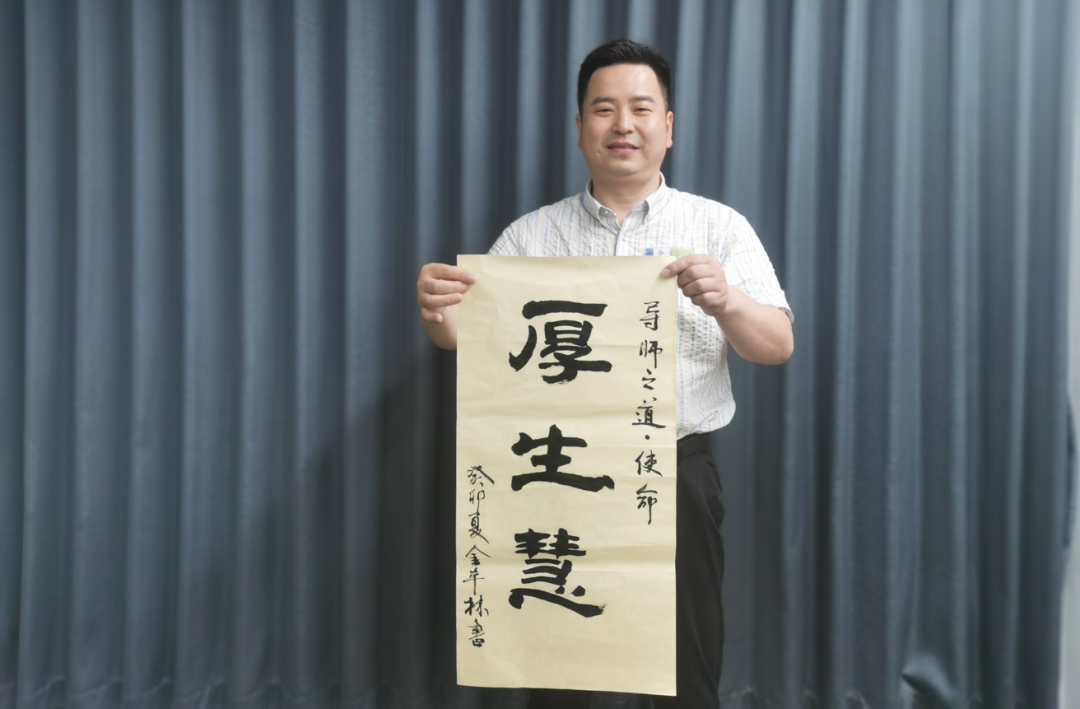 导师之道·使命
厚生慧
癸卯夏金平林书